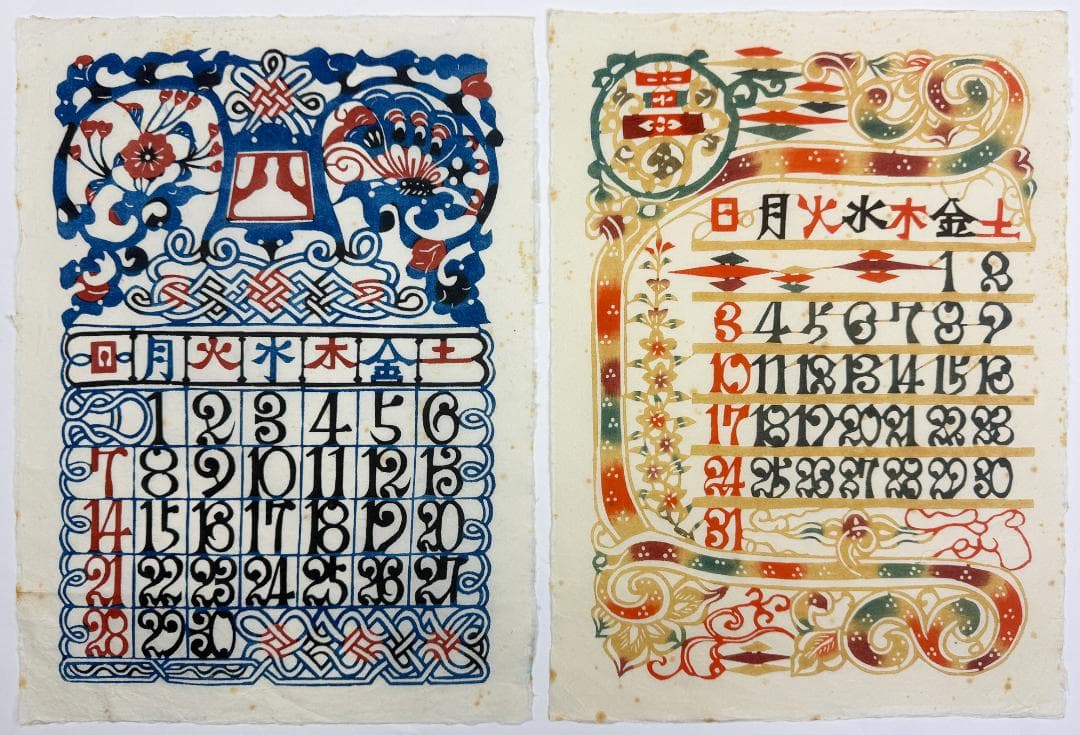 日 月 火 水 木 金 土
1 2 3 4 5 6
7 8 9 10 11 12 13
14 15 16 17 18 19 20
21 22 23 24 25 26 27
28 29 30
日 月 火 水 木 金 土
1 2
3 4 5 6 7 8 9
10 11 12 13 14 15 16
17 18 19 20 21 22 23
24 25 26 27 28 29 30
31